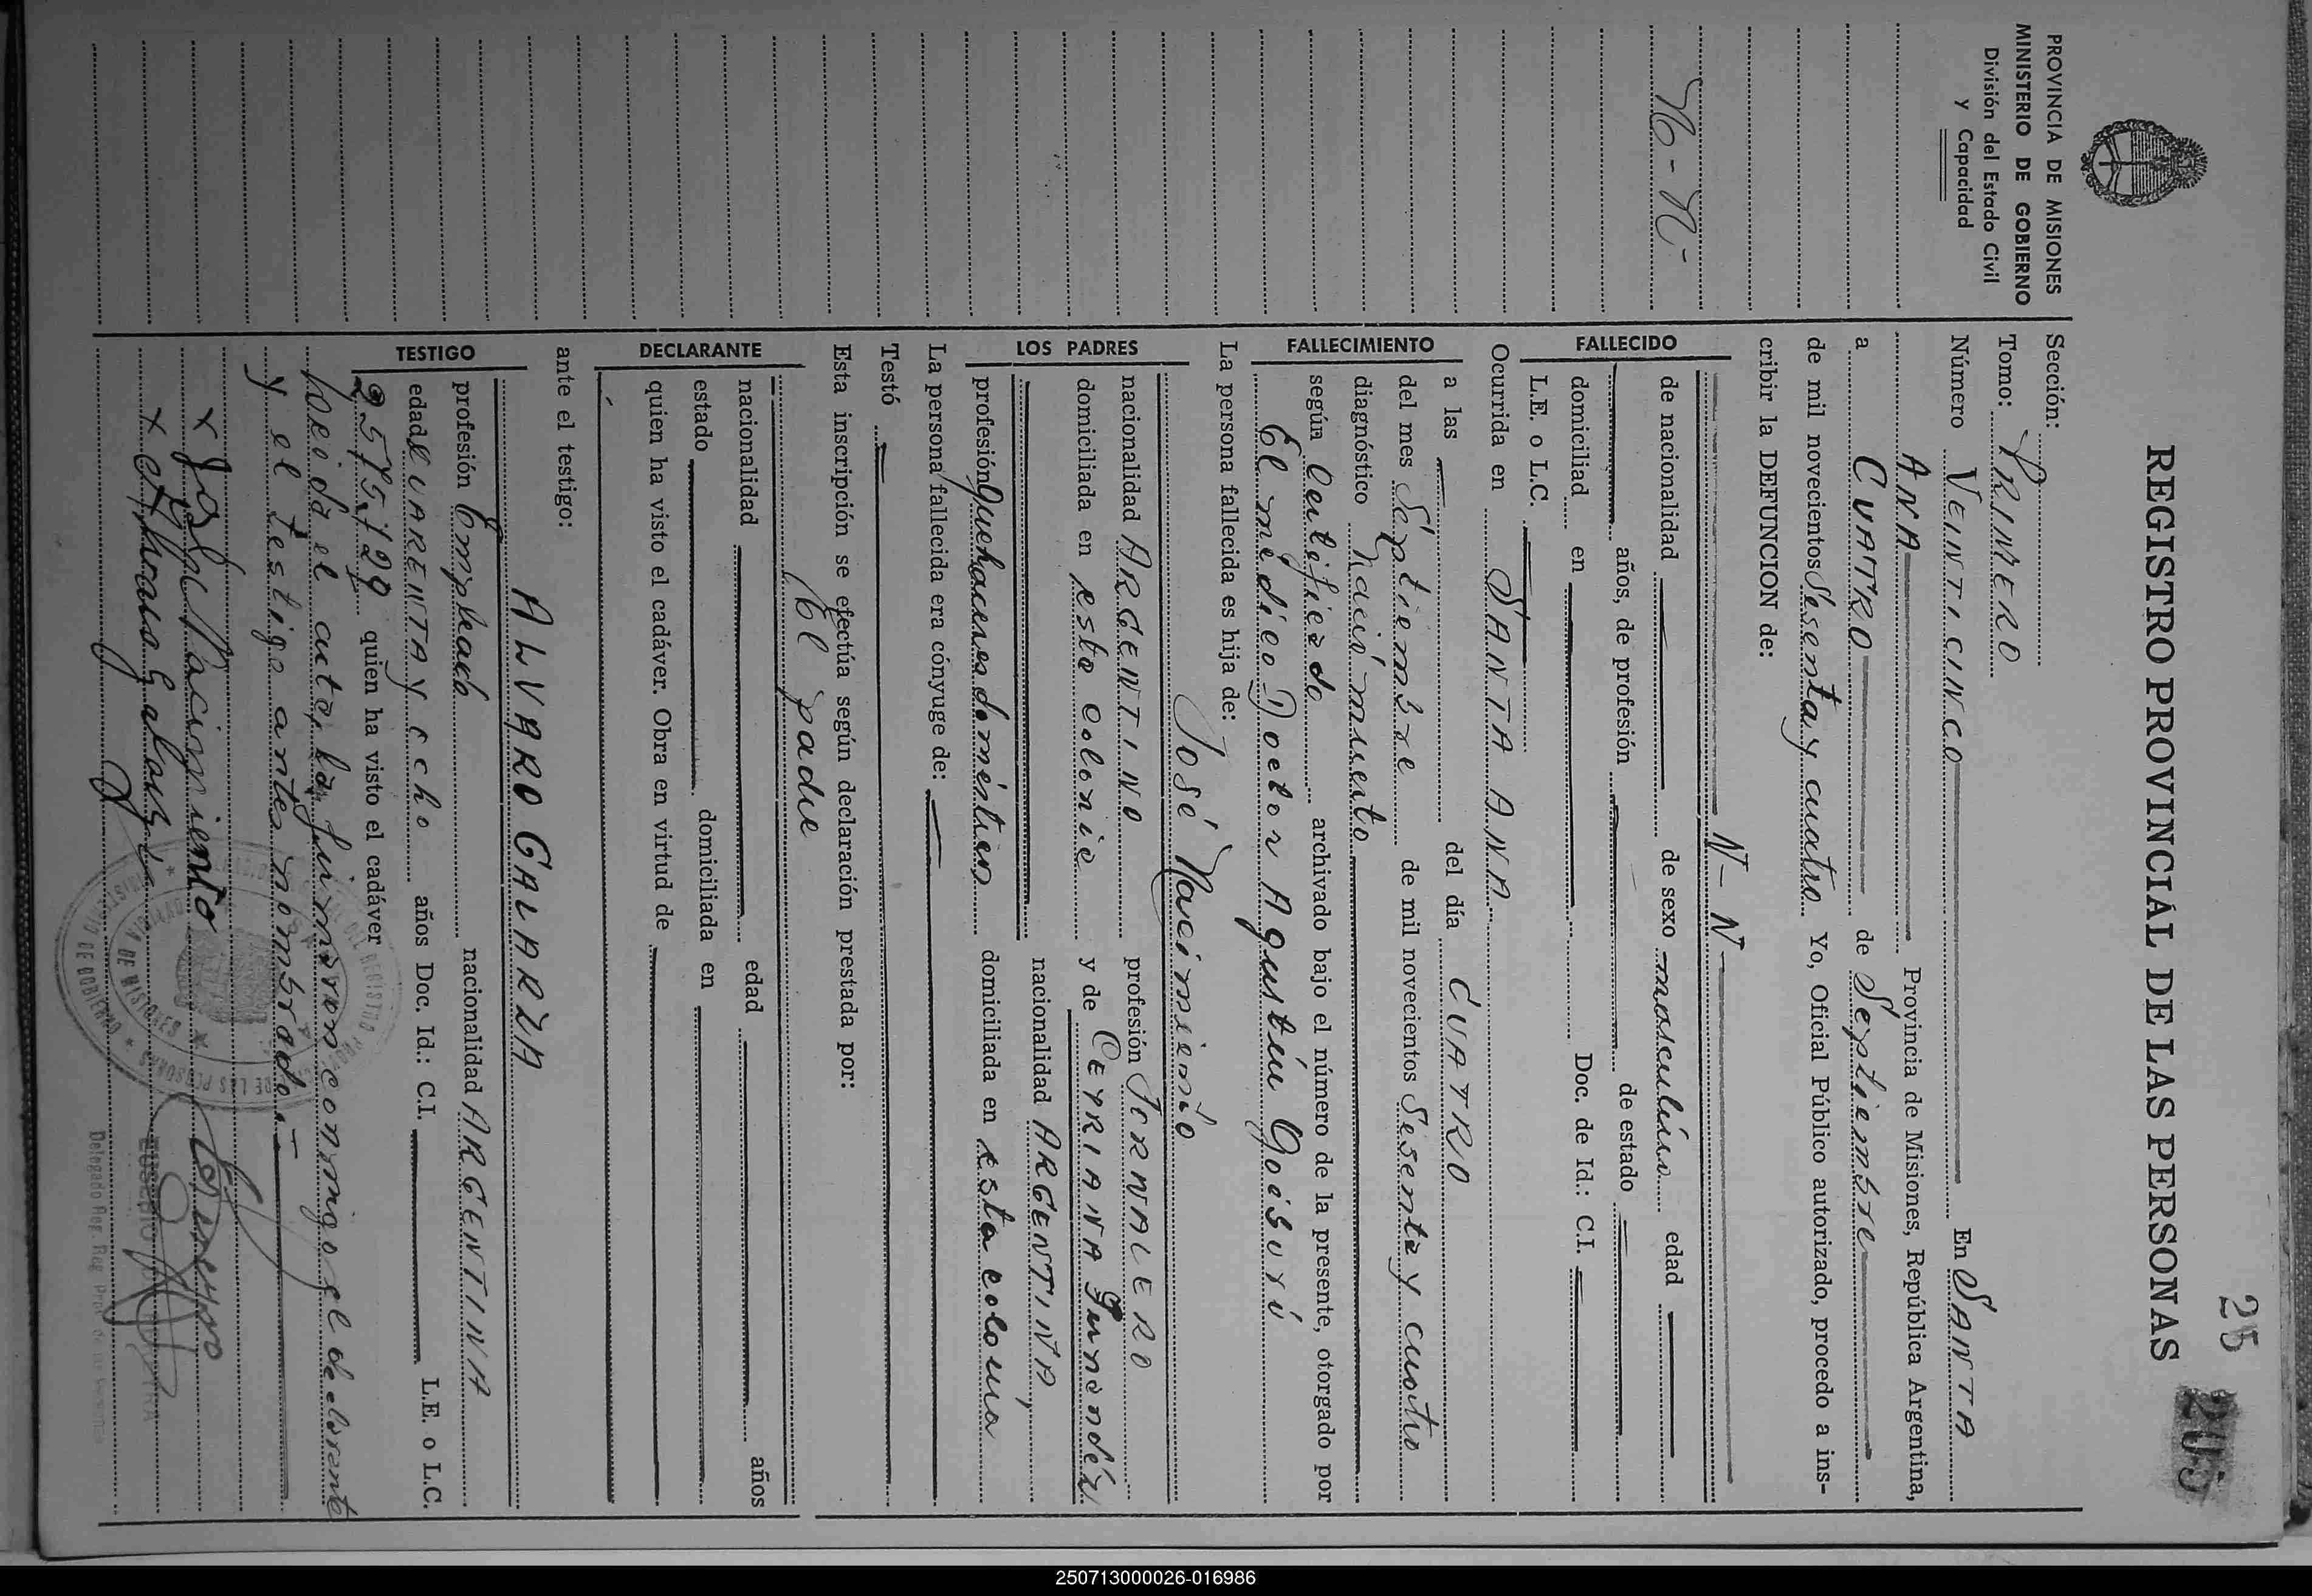 25
205
REGISTRO PROVINCIAL DE LAS PERSONAS
PROVINCIA DE MISIONES
MINISTERIO DE GOBIERNO
División del Estado Civil
y Capacidad
N-N-
Sección:
Tomo: PRIMERO
Número VEINTICINCO En SANTA
ANA Provincia de Misiones, República Argentina,
a CUATRO de Septiembre
de mil novecientos Sesenta y cuatro Yo, Oficial Público autorizado, procedo a ins-
cribir la DEFUNCION de:
N-N
FALLECIDO
de nacionalidad de sexo masculino edad
años, de profesión de estado
domiciliad en Doc. de Id.: C.I.
L.E. o L.C.
Ocurrida en SANTA ANA
FALLECIMIENTO
a las del día CUATRO
del mes Septiembre de mil novecientos Sesenta y cuatro
diagnóstico Nació muerto
según Certificado archivado bajo el número de la presente, otorgado por
El médico Doctor Agustín
La persona fallecida es hija de:
José Nacimiento
LOS PADRES
nacionalidad ARGENTINO profesión JORNALERO
domiciliada en esta colonia y de CEYRIANA
nacionalidad ARGENTINA,
profesión Quehaceres domésticos domiciliada en esta colonia
La persona fallecida era cónyuge de:
Testó
Esta inscripción se efectúa según declaración prestada por:
El padre
DECLARANTE
nacionalidad edad años
estado domiciliada en
quien ha visto el cadáver. Obra en virtud de
ante el testigo:
ALVARO GALARZA
TESTIGO
profesión Empleado nacionalidad ARGENTINA
edad CUARENTA y ocho años Doc. Id.: C.I. L.E. o L.C.
2.575.129 quien ha visto el cadáver
Leída el acta, la firmaron conmigo el declarante
y el testigo antes nombrado.-
x José Nacimiento
x Alvaro Galarza
EUSEBIO
Delegado Reg. Prov. de las Personas
250713000026-016986